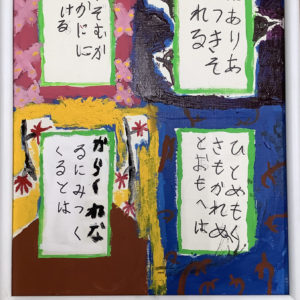 ありあ
つきそ
れる
そむか
かにに
ける
ひとめもく
さもかれぬ
とおもへは
からくれな
ゐにみつく
くるとは